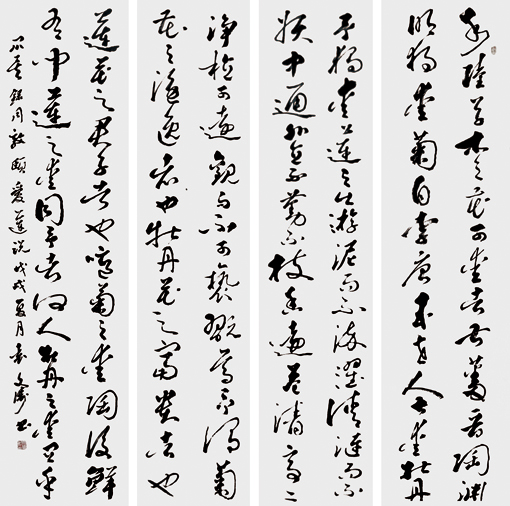 水陸草木之花可愛者甚蕃晉陶淵
明獨愛菊自李唐來世人甚愛牡丹
予獨愛蓮之出淤泥而不染濯清漣而不
妖中通外直不蔓不枝香遠益清亭々
淨植可遠觀而不可褻翫焉予謂菊
花之隱逸者也牡丹花之富貴者也
蓮花之君子者也噫菊之愛陶後鮮
有聞蓮之愛同予者何人牡丹之愛宜乎
眾矣 錄周敦頤愛蓮說 戊戌夏月 書